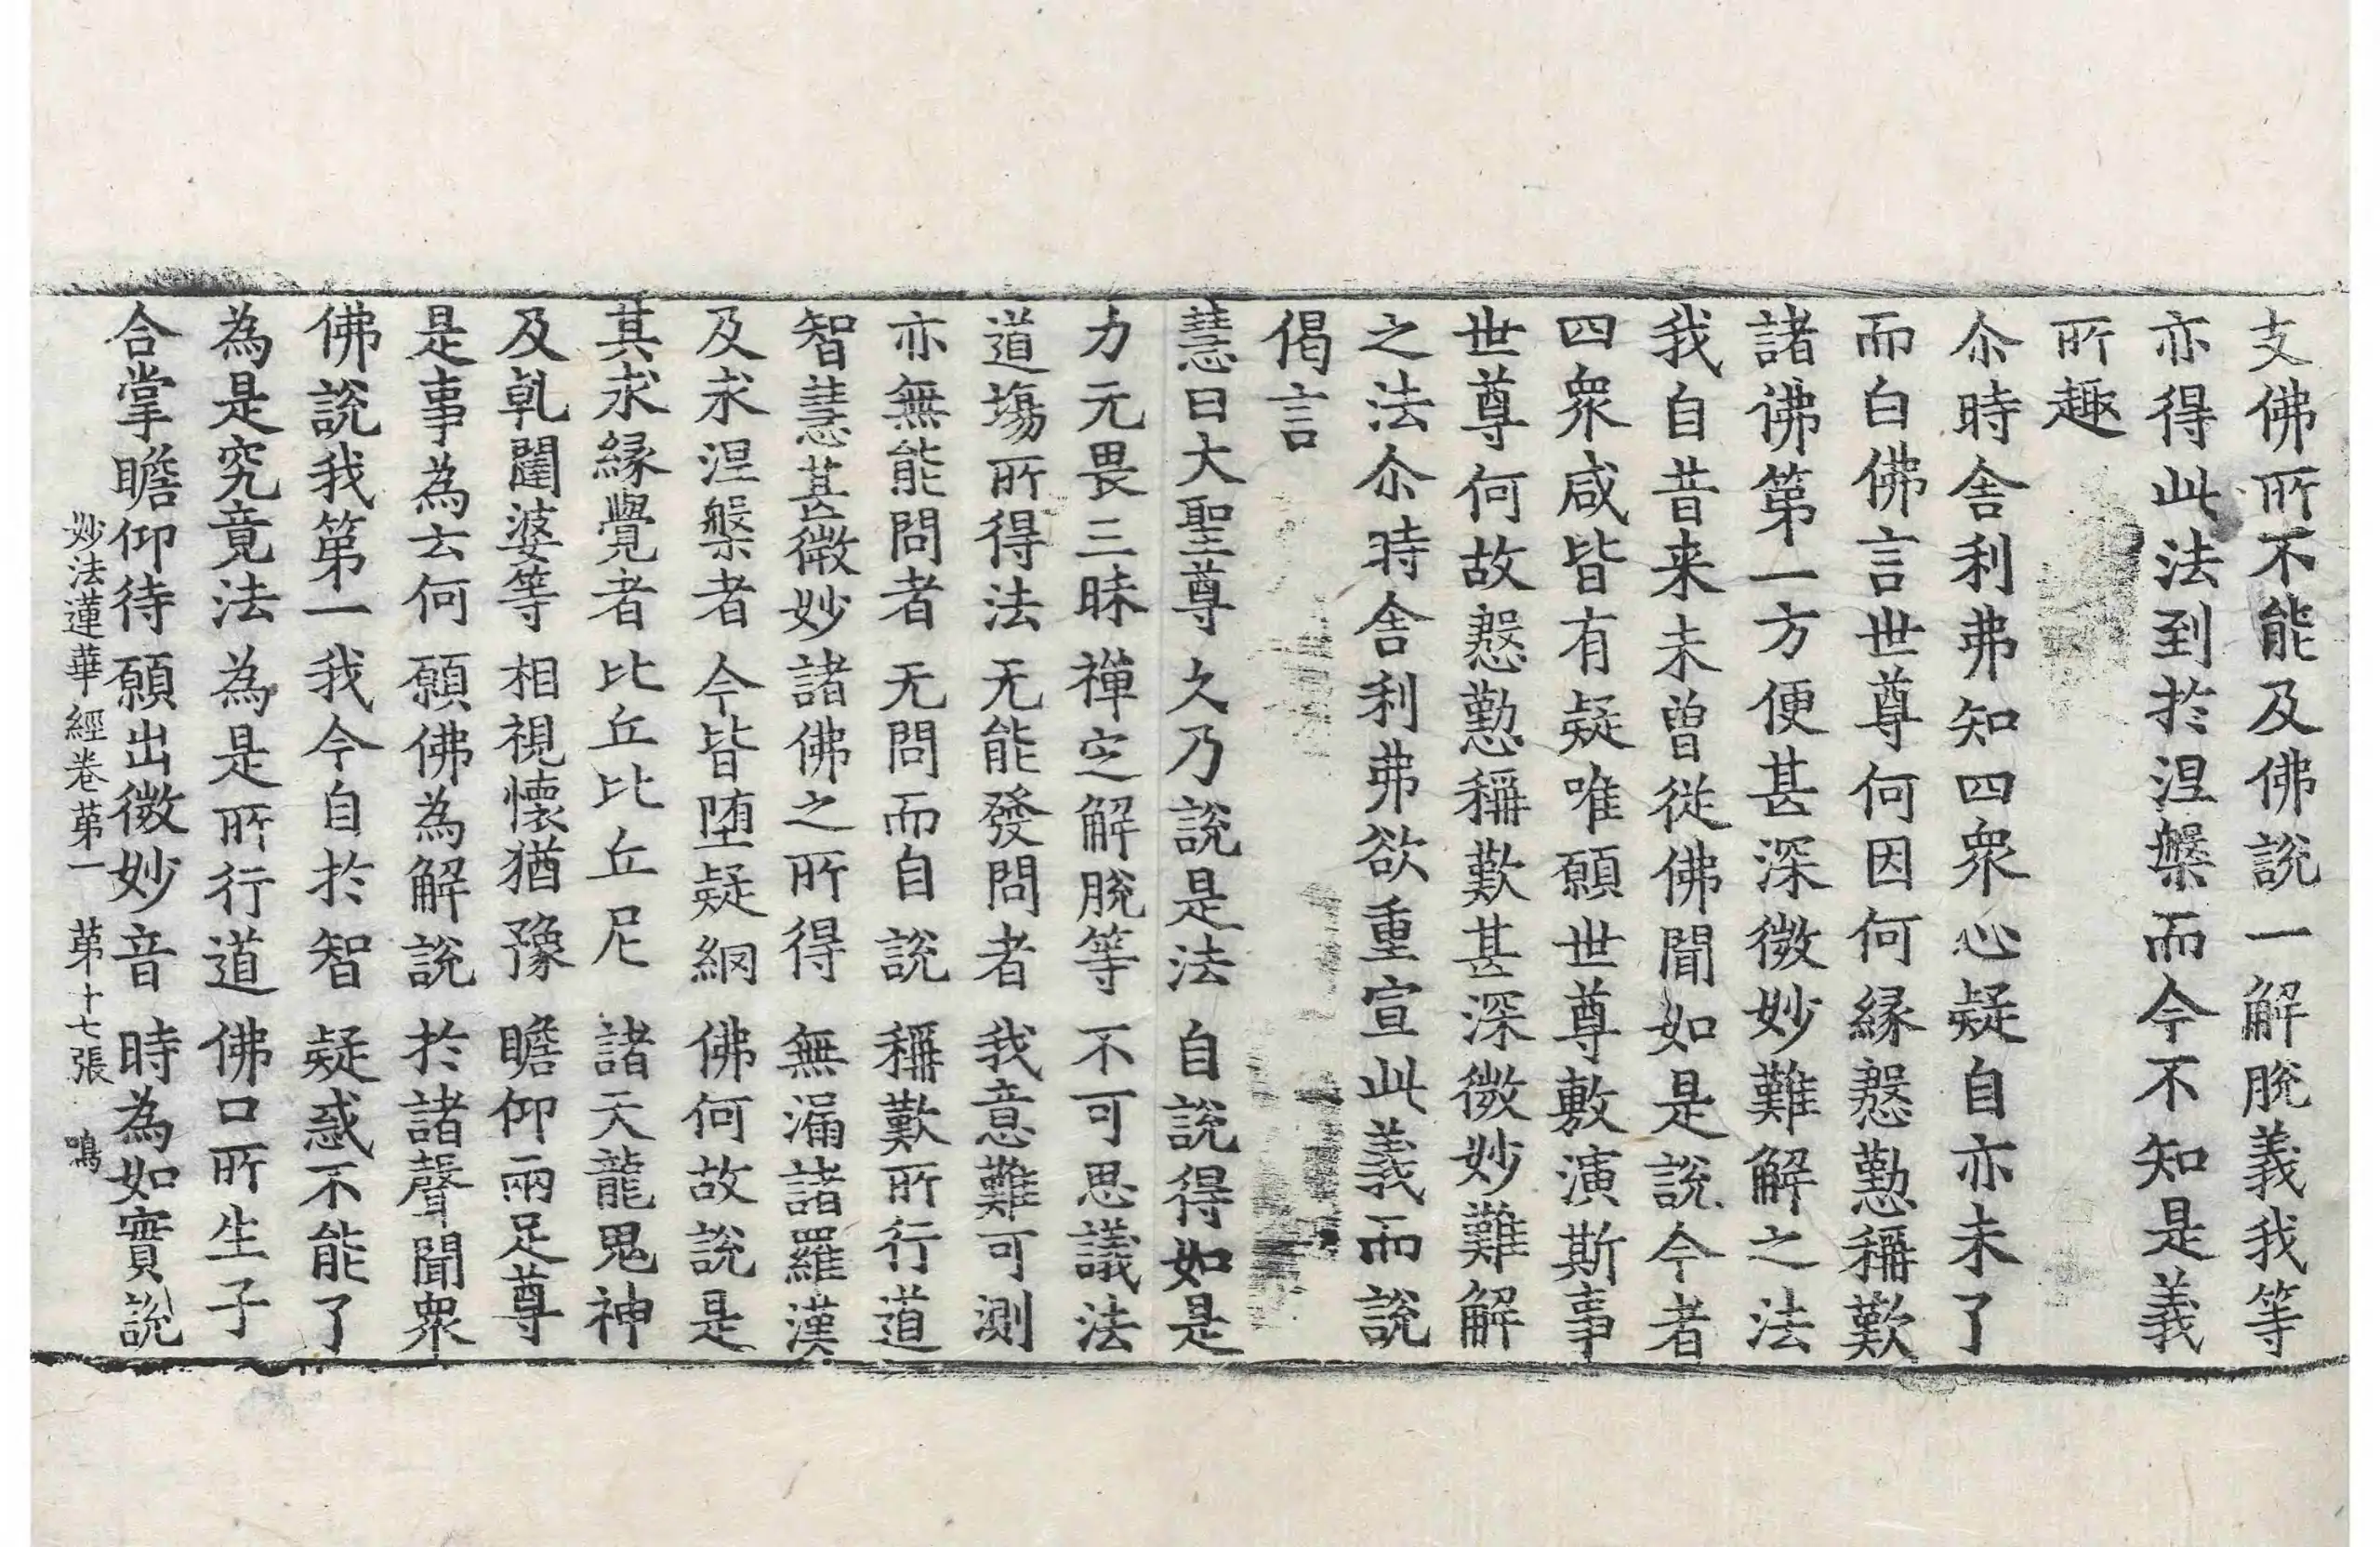 支佛所不能及佛說一解脫義我等
亦得此法到於涅槃而今不知是義
所趣
尒時舍利弗知四眾心疑自亦未了
而白佛言世尊何因何緣慇懃稱歎
諸佛第一方便甚深微妙難解之法
我自昔来未曾從佛聞如是說今者
四眾咸皆有疑唯願世尊敷演斯事
世尊何故慇懃稱歎甚深微妙難解
之法尒時舍利弗欲重宣此義而說
偈言
慧日大聖尊 久乃說是法 自說得如是
力无畏三昧 禪定解脫等 不可思議法
道場所得法 无能發問者 我意難可測
亦無能問者 无問而自說 稱歎所行道
智慧甚微妙 諸佛之所得 無漏諸羅漢
及求涅槃者 今皆堕疑網 佛何故說是
其求緣覺者 比丘比丘尼 諸天龍鬼神
及乹闥婆等 相視懷猶豫 瞻仰兩足尊
是事為云何 願佛為解說 於諸聲聞眾
佛說我第一 我今自於智 疑惑不能了
為是究竟法 為是所行道 佛口所生子
合掌瞻仰待 願出微妙音 時為如實說
妙法蓮華經卷苐一 苐十七張 鳴